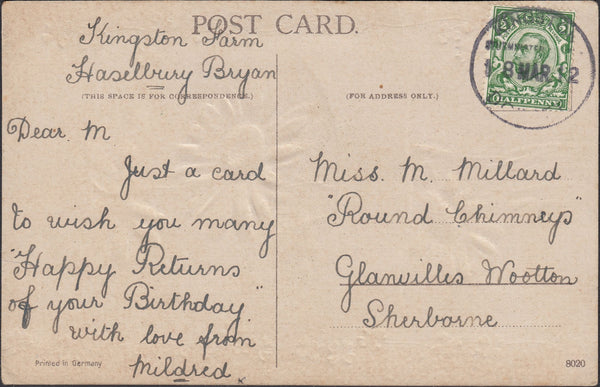 POST CARD.
Kingston Farm
Haselbury Bryan
(THIS SPACE IS FOR CORRESPONDENCE.)
Dear M
Just a card
to wish you many
"Happy Returns
of your Birthday"
with love from
Mildred.
Printed in Germany
(FOR ADDRESS ONLY.)
Miss. M. Millard
"Round Chimneys"
Glanvilles Wootton
Sherborne
8020
KINGSTON
8 MAR 12
HALFPENNY